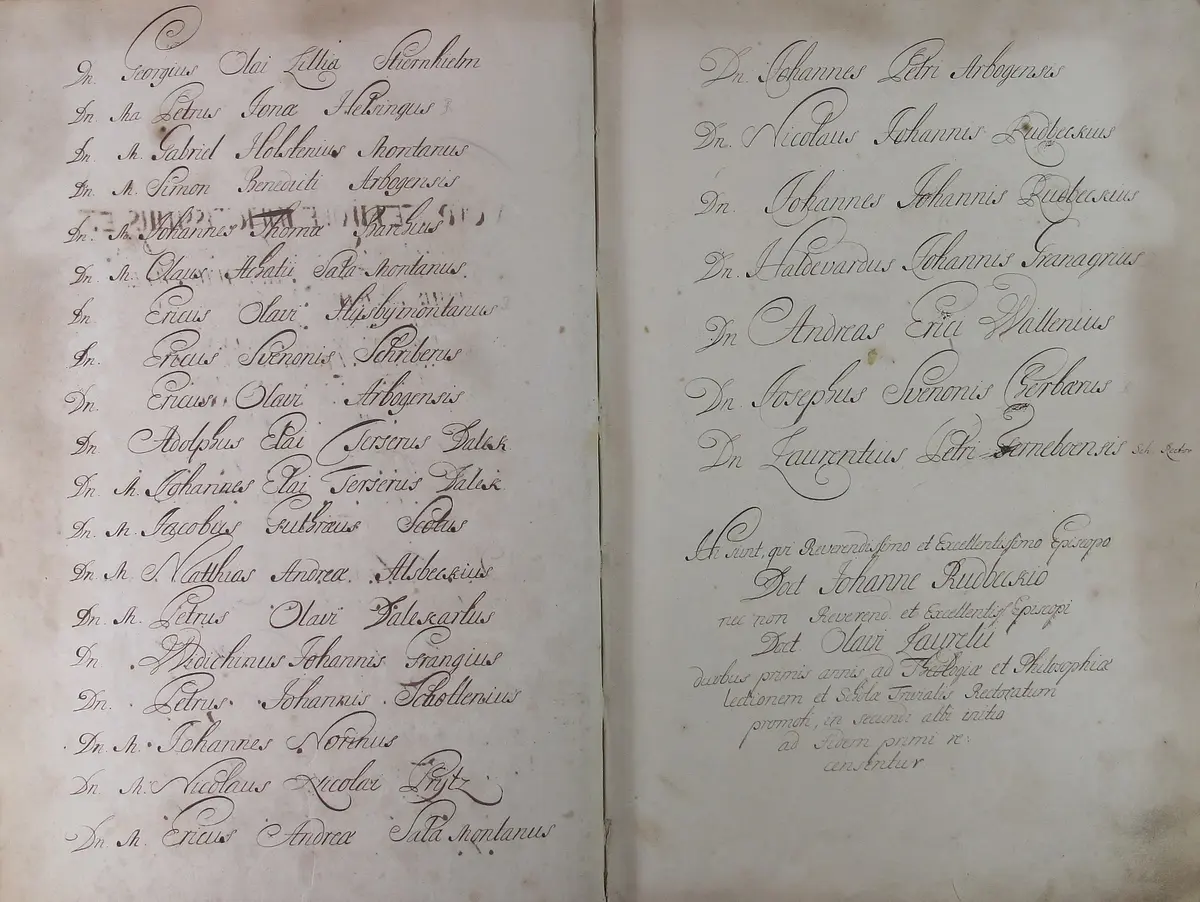 Dn. Georgius Olai Lillia Stiernhielm
Dn. Ma Petrus Jonæ Helsingus
Dn. M. Gabriel Holstenius Montanus
Dn. M. Simon Benedicti Arbogensis
Dn. M. Johannes Thomæ
Dn. M. Olaus Sala Montanus.
Dn. Ericus Olavi
Dn. Ericus Svenonis Schriberus
Dn. Ericus Olavi Arbogensis
Dn. Adolphus Elai Terserus Dalek
Dn. M. Johannes Elai Terserus Dalek
Dn. M. Jacobus Guthræus Scotus
Dn. M. Matthias Andreæ Alsbeckius
Dn. M. Petrus Olavi Dalekarlus
Dn Medichinus Johannis Grangius
Dn. Petrus Johannis Schottenius
Dn. M. Johannes Norinus
Dn. M. Nicolaus Nicolai Prytz
Dn. M. Ericus Andreæ Sala Montanus
Dn. Johannes Petri Arbogensis
Dn. Nicolaus Johannis Rudbeckius
Dn. Johannes Johannis Rudbeckius
Dn. Haldevardus Johannis Granagrius
Dn Andreas Erici Wallenius
Dn. Josephus Svenonis
Dn Laurentius Petri Ferneboensis Sch. Rector
Hi sunt, qui Reverendissimo et Excellentissimo Episcopo
Doct Johanne Rudbeckio
nec non Reverend et Excellentiss Episcopi
Doct Olavi Laurelii
duobus primis annis ad Theologiæ et Philosophiæ
Lectionem et Scholæ Trivialis Rectoratum
promoti, in secundi albi initio
ad fidem primi re-
censentur